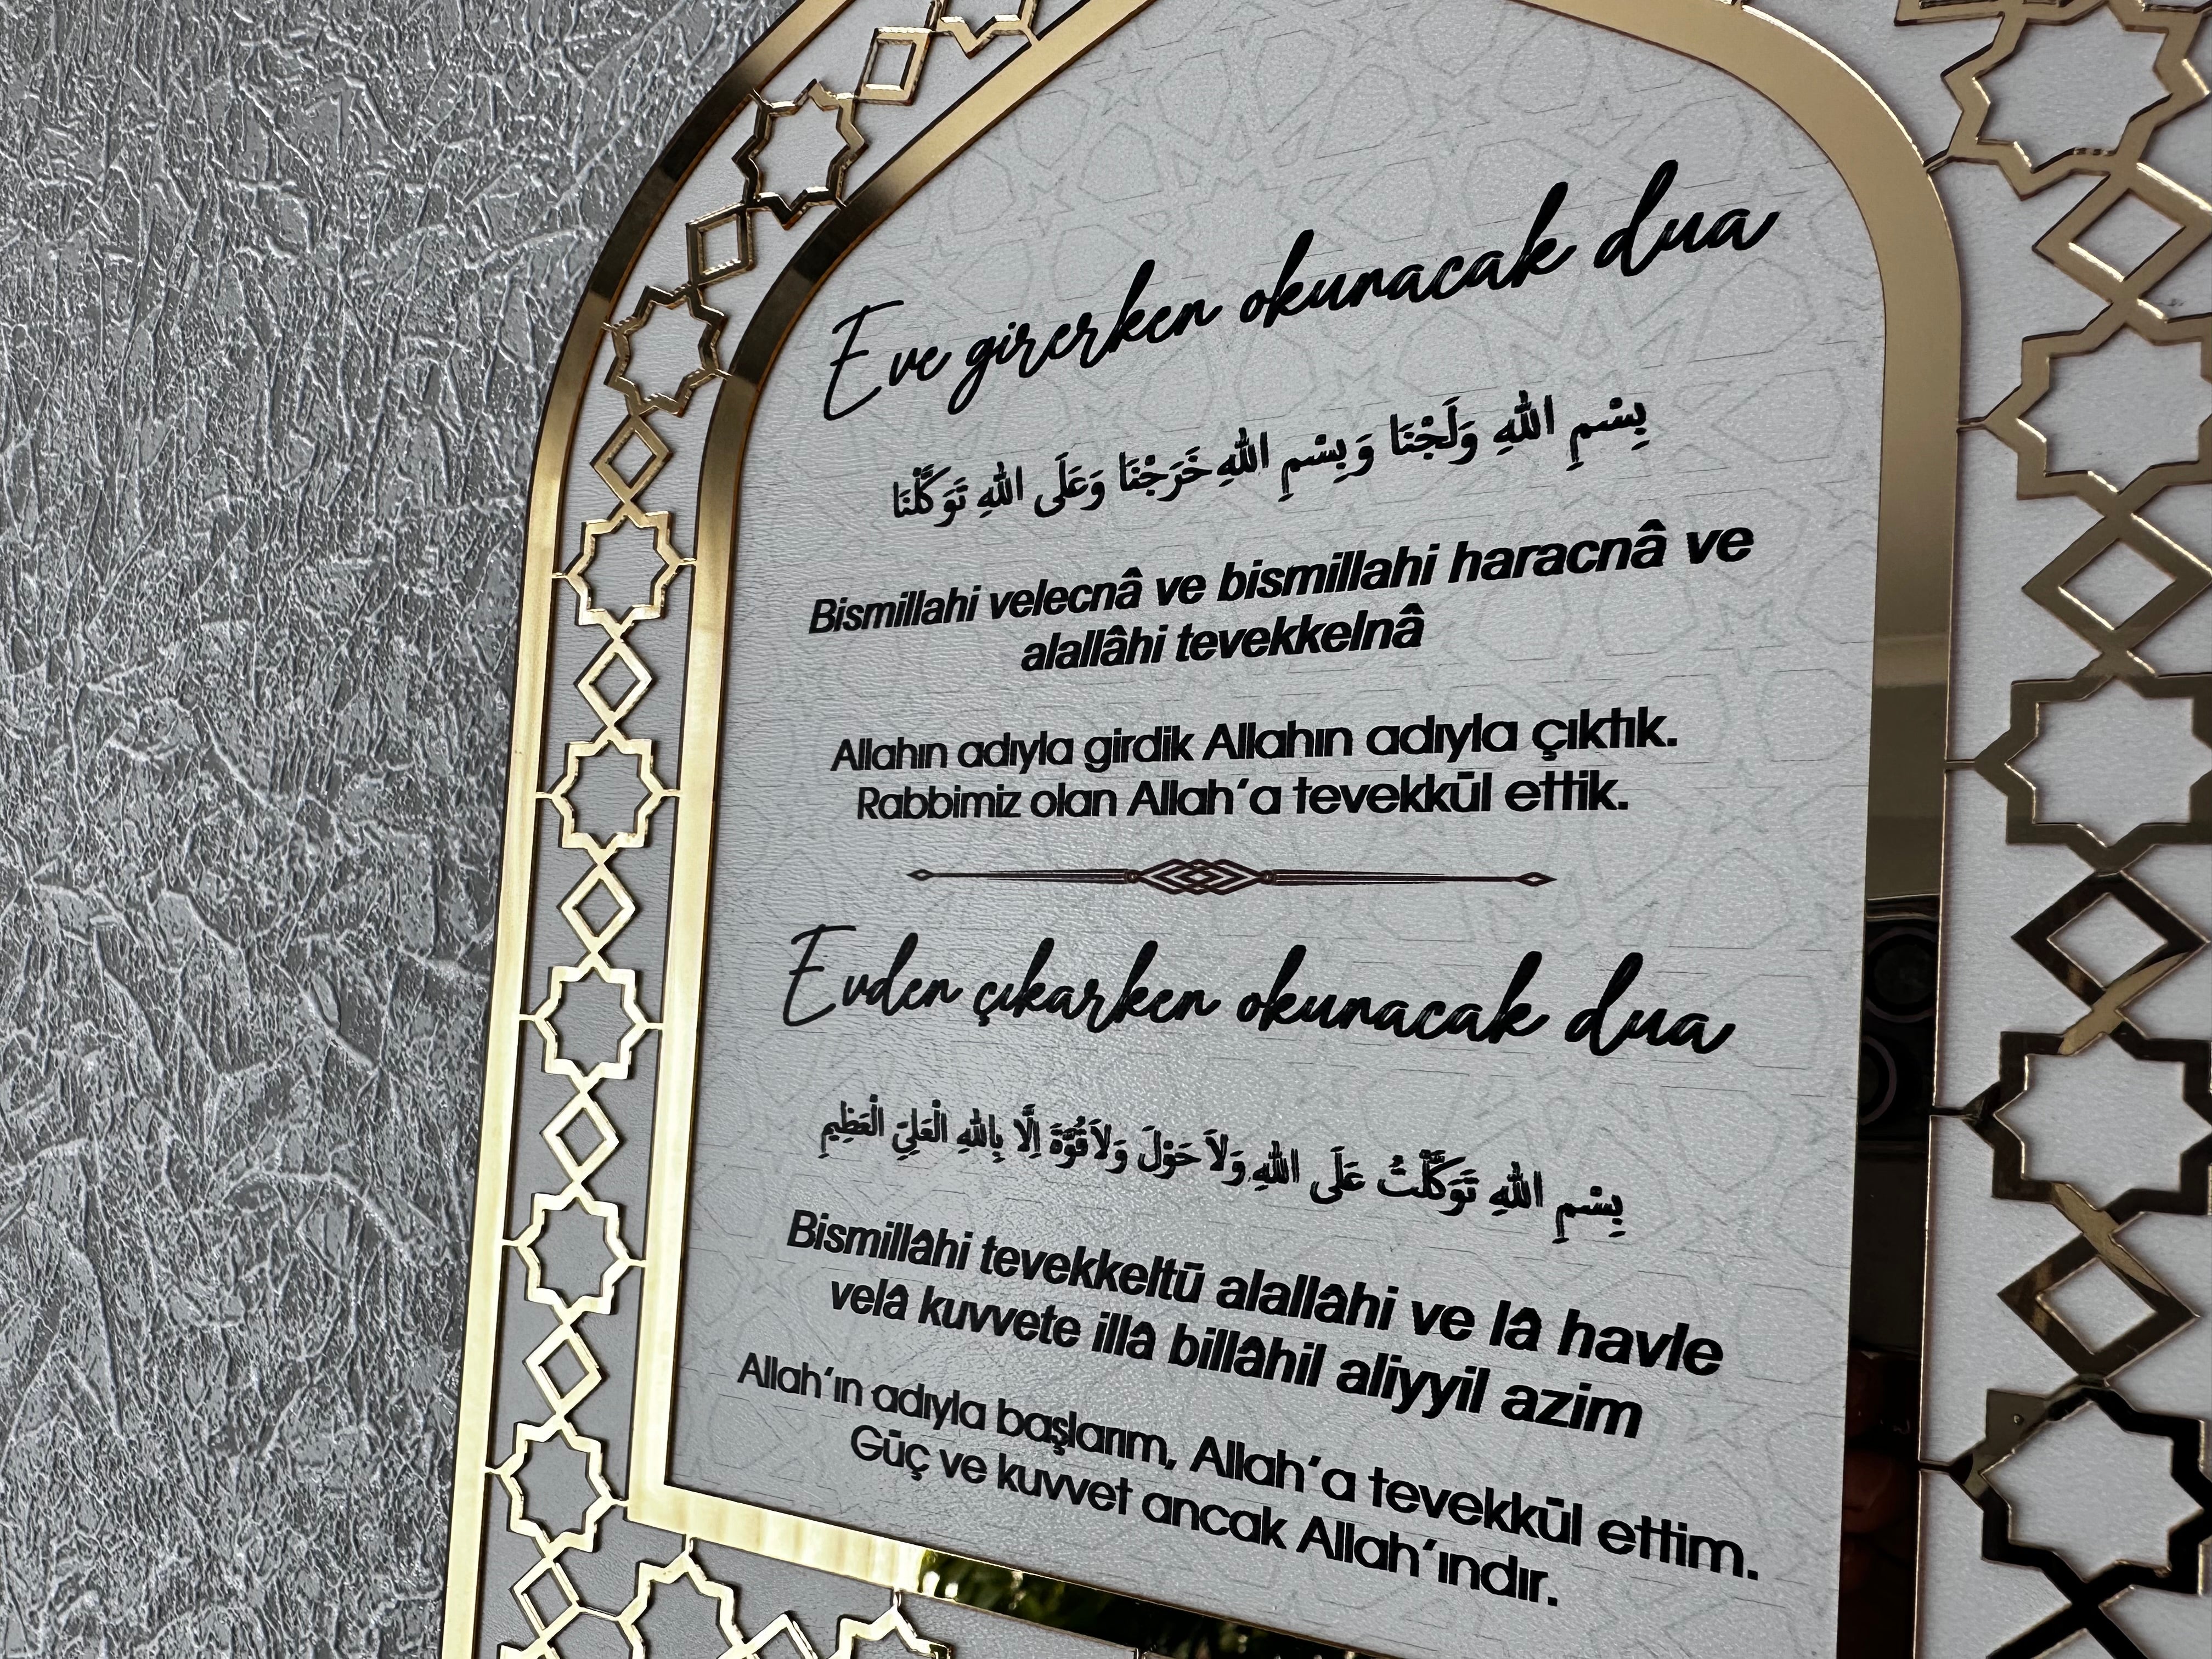 Eve girerken okunacak dua
بِسْمِ اللهِ وَلَجْنَا وَبِسْمِ اللهِ خَرَجْنَا وَعَلَى اللهِ تَوَكَّلْنَا
Bismillahi velecnâ ve bismillahi haracnâ ve
alallâhi tevekkelnâ
Allahın adıyla girdik Allahın adıyla çıktık.
Rabbimiz olan Allah'a tevekkül ettik.
Evden çıkarken okunacak dua
بِسْمِ اللهِ تَوَكَّلْتُ عَلَى اللهِ وَلاَ حَوْلَ وَلاَ قُوَّةَ اِلَّا بِاللهِ الْعَلِيِّ الْعَظِيمِ
Bismillâhi tevekkeltü alallâhi ve lâ havle
velâ kuvvete illâ billâhil aliyyil azim
Allah'ın adıyla başlarım, Allah'a tevekkül ettim.
Güç ve kuvvet ancak Allah'ındır.